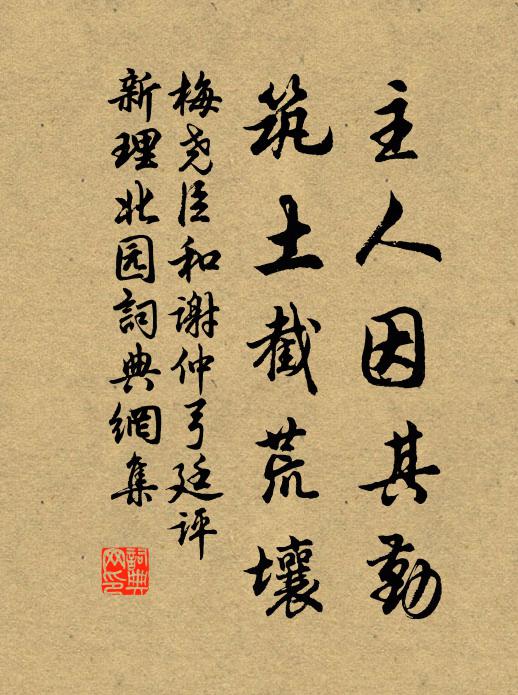 主人因其勤
筑土截荒壤
梅尧臣和谢仲弓廷评
新理北园詞典網集
詞典网印